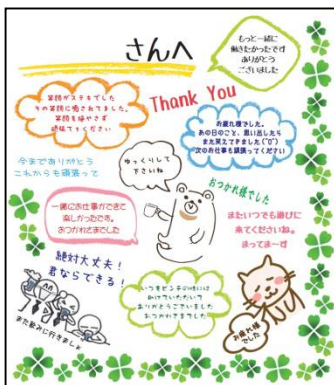 さんへ
もっと一緒に
働きたかったです
ありがとう
ございました
笑顔がステキでした
その笑顔に癒されてました。
笑顔を絶やさず
頑張ってください
Thank You
お疲れ様でした。
あの日のこと、思い出したら
また笑えてきました(^o^)
次のお仕事も頑張ってください
今までありがとう
これからも頑張って
ゆっくりして
下さいね
おつかれ様でした
一緒にお仕事ができて
楽しかったです。
おつかれさまでした
またいつでも遊びに
来てくださいね。
まってまーす
絶対大丈夫!
君ならできる!
いつもピンチの時には
助けていただいて
ありがとうございました
おつかれさまでした
お疲れ様
でした
また飲みに行きましょ